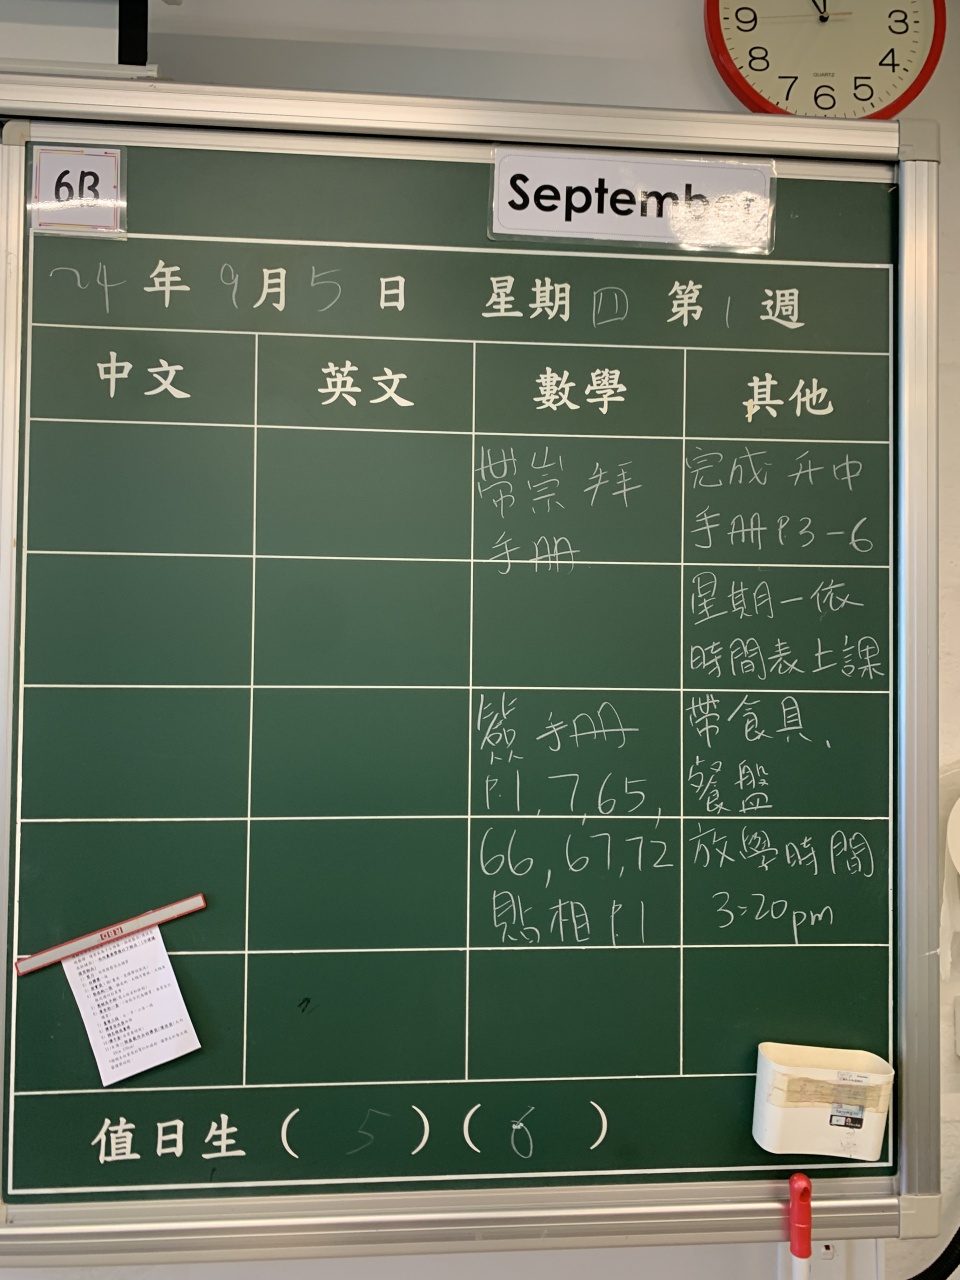 9 3
8 4
7 6 5
QUARTZ
6B
September
24 年 9 月 5 日 星期 四 第 1 週
中文 英文 數學 其他
帶崇拜
手冊
簽 手冊
P.1, 7, 65,
66, 67, 72
貼相 P.1
完成 升中
手冊 P.3-6
星期一依
時間表上課
帶食具、
餐盤
放學時間
3:20 pm
值日生 ( 5 ) ( 6 )